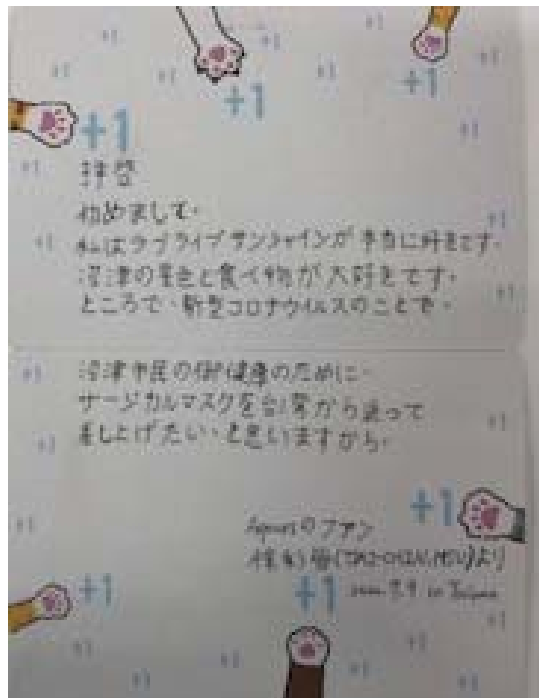 +1
+1
+1
拝啓
初めまして。
私はラブライブサンシャインが本当に好きです。
沼津の景色と食べ物が大好きです。
ところで、新型コロナウイルスのことで、
沼津市民の御健康のために、
サージカルマスクを台湾から送って
差し上げたい、と思いますから。
+1
Aqoursのファン
より
+1
+1
in Taiwan